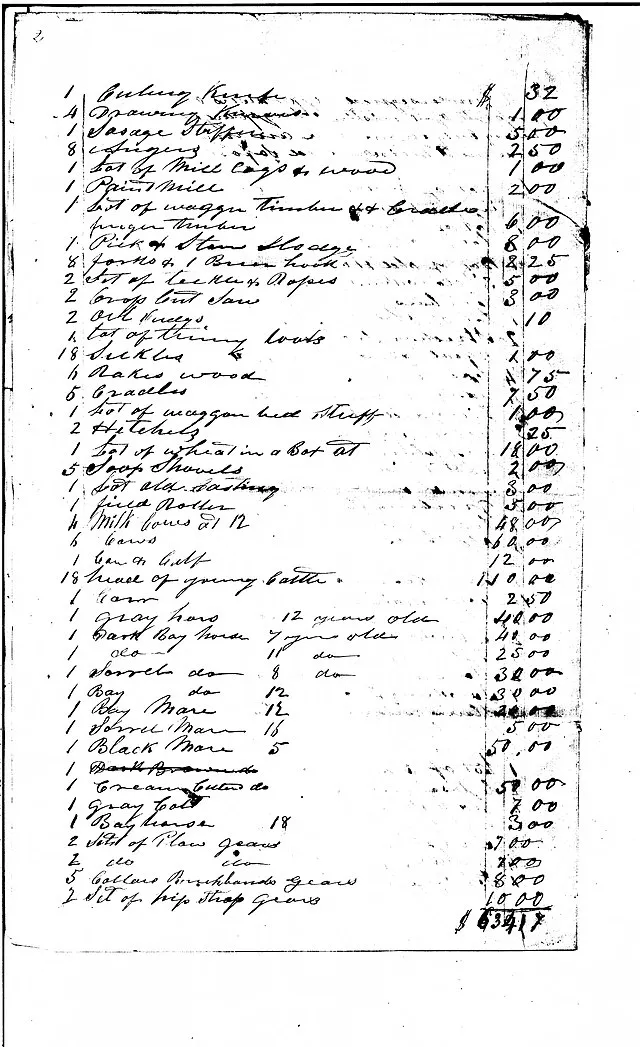 2
1 Cuting Knife $ 32
4 Drawing Knives 1 00
1 Sasage Stuffer 5 00
8 Augers 2 50
1 Lot of Mill Cogs & wood 1 00
1 Paint Mill 2 00
1 Lot of waggon timber & Cradle
finger timber 6 00
1 Pick & Stone Sledge 8 00
8 forks & 1 Brier hook 2 25
2 Set of teckle & Ropes 5 00
2 Crop Cut Saw 3 00
2 Oil 10
1 Lot of tools
18 Sickles 1 00
4 Rakes wood 75
5 Cradles 7 50
1 Lot of waggon bed stuff 1 00
2 Hetchels 25
1 Lot of wheat in a Box at 18 00
5 Shovels 2 00
1 Lot old 3 00
1 field Roller 5 00
4 Milk Cows at 12 48 00
6 Cows 60 00
1 Cow & Calf 12 00
18 head of young Cattle 110 00
1 2 50
1 gray hors 12 years old 40 00
1 Dark Bay horse 7 years old 40 00
1 do 11 do 25 00
1 Sorrel do 8 do 30 00
1 Bay do 12 30 00
1 Bay Mare 12
1 Sorrel Mare 16 5 00
1 Black Mare 5 50.00
1 Dark Brown do
1 Cream do 50 00
1 gray Colt 7 00
1 Bay horse 18 3 00
2 Sets of Plow gears 7 00
2 do do 7 00
5 Collars Brichbands gears 8 00
2 Set of hip Strap gears 10 00
$ 634 17